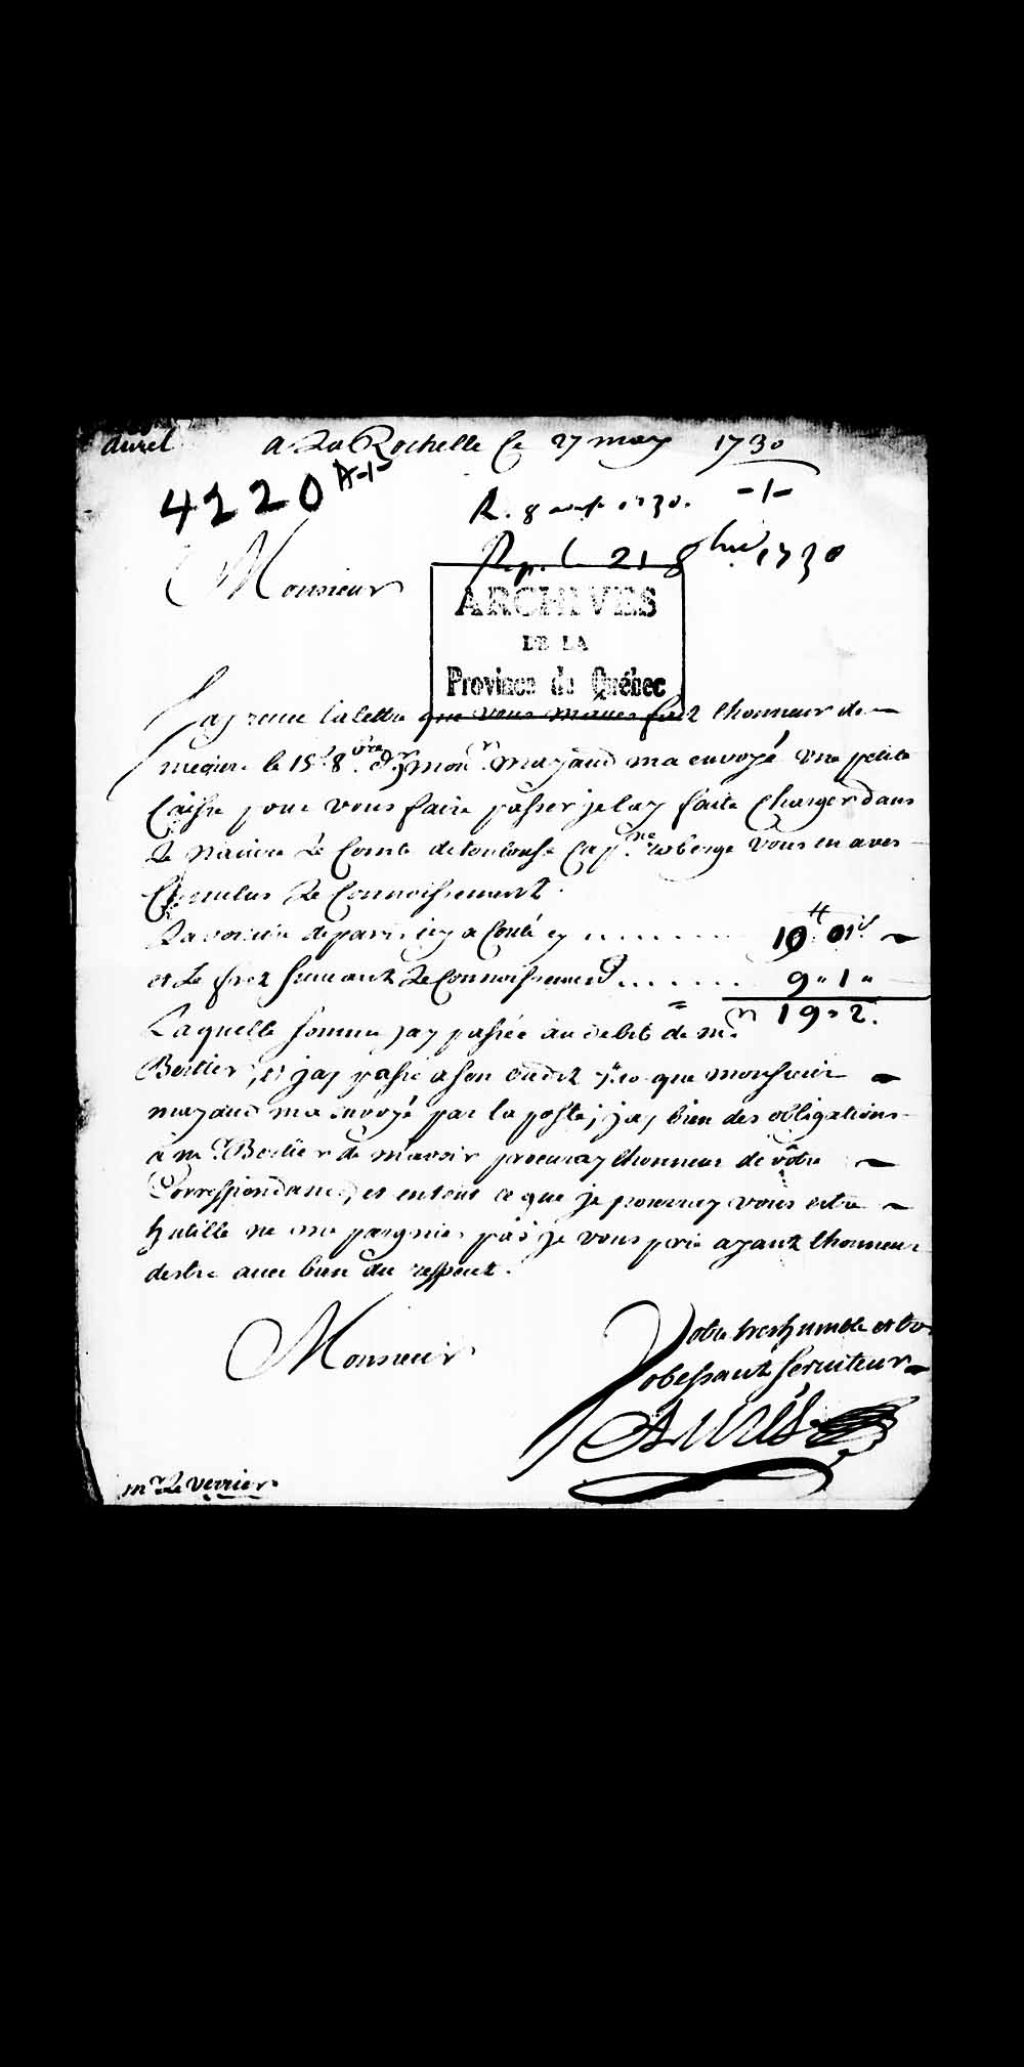 aurel a La Rochelle Ce 27 may 1730
4220 A-1
R. 8 1730. -1-
Rep. le 21 8bre 1730
Monsieur
ARCHIVES
DE LA
Province de Québec
Jay receu la lettre que vous maues fait lhonneur de
mecrire le 15e 8bre dr monr mayaud ma envoyé une petite
Caisse pour vous faire passer je lay faite Charger dans
Le Navire Le Comte de toulouse Capne Vous en aves
Cy inclus Le Connoissement.
La voiture de paris icy a Couté cy ........ 10 ₶ 01 s
et Le fret suivant Le Connoissement ...... 9 " 1 "
19 " 2.
Laquelle somme jay passée au debit de mr
Bertier, et jay passé a son credit que monsieur
mayaud ma envoyé par la poste; jay bien des obligations
a mr Bertier de mavoir procuray lhonneur de vôtre
Correspondance, et en tout ce que je pourray vous estre
hutille ne me pargnies pas je vous prie ayant lhonneur
destre avec bien du respect.
Monsieur
Votre tres humble et tres
obeissant serviteur
mr Le verrier